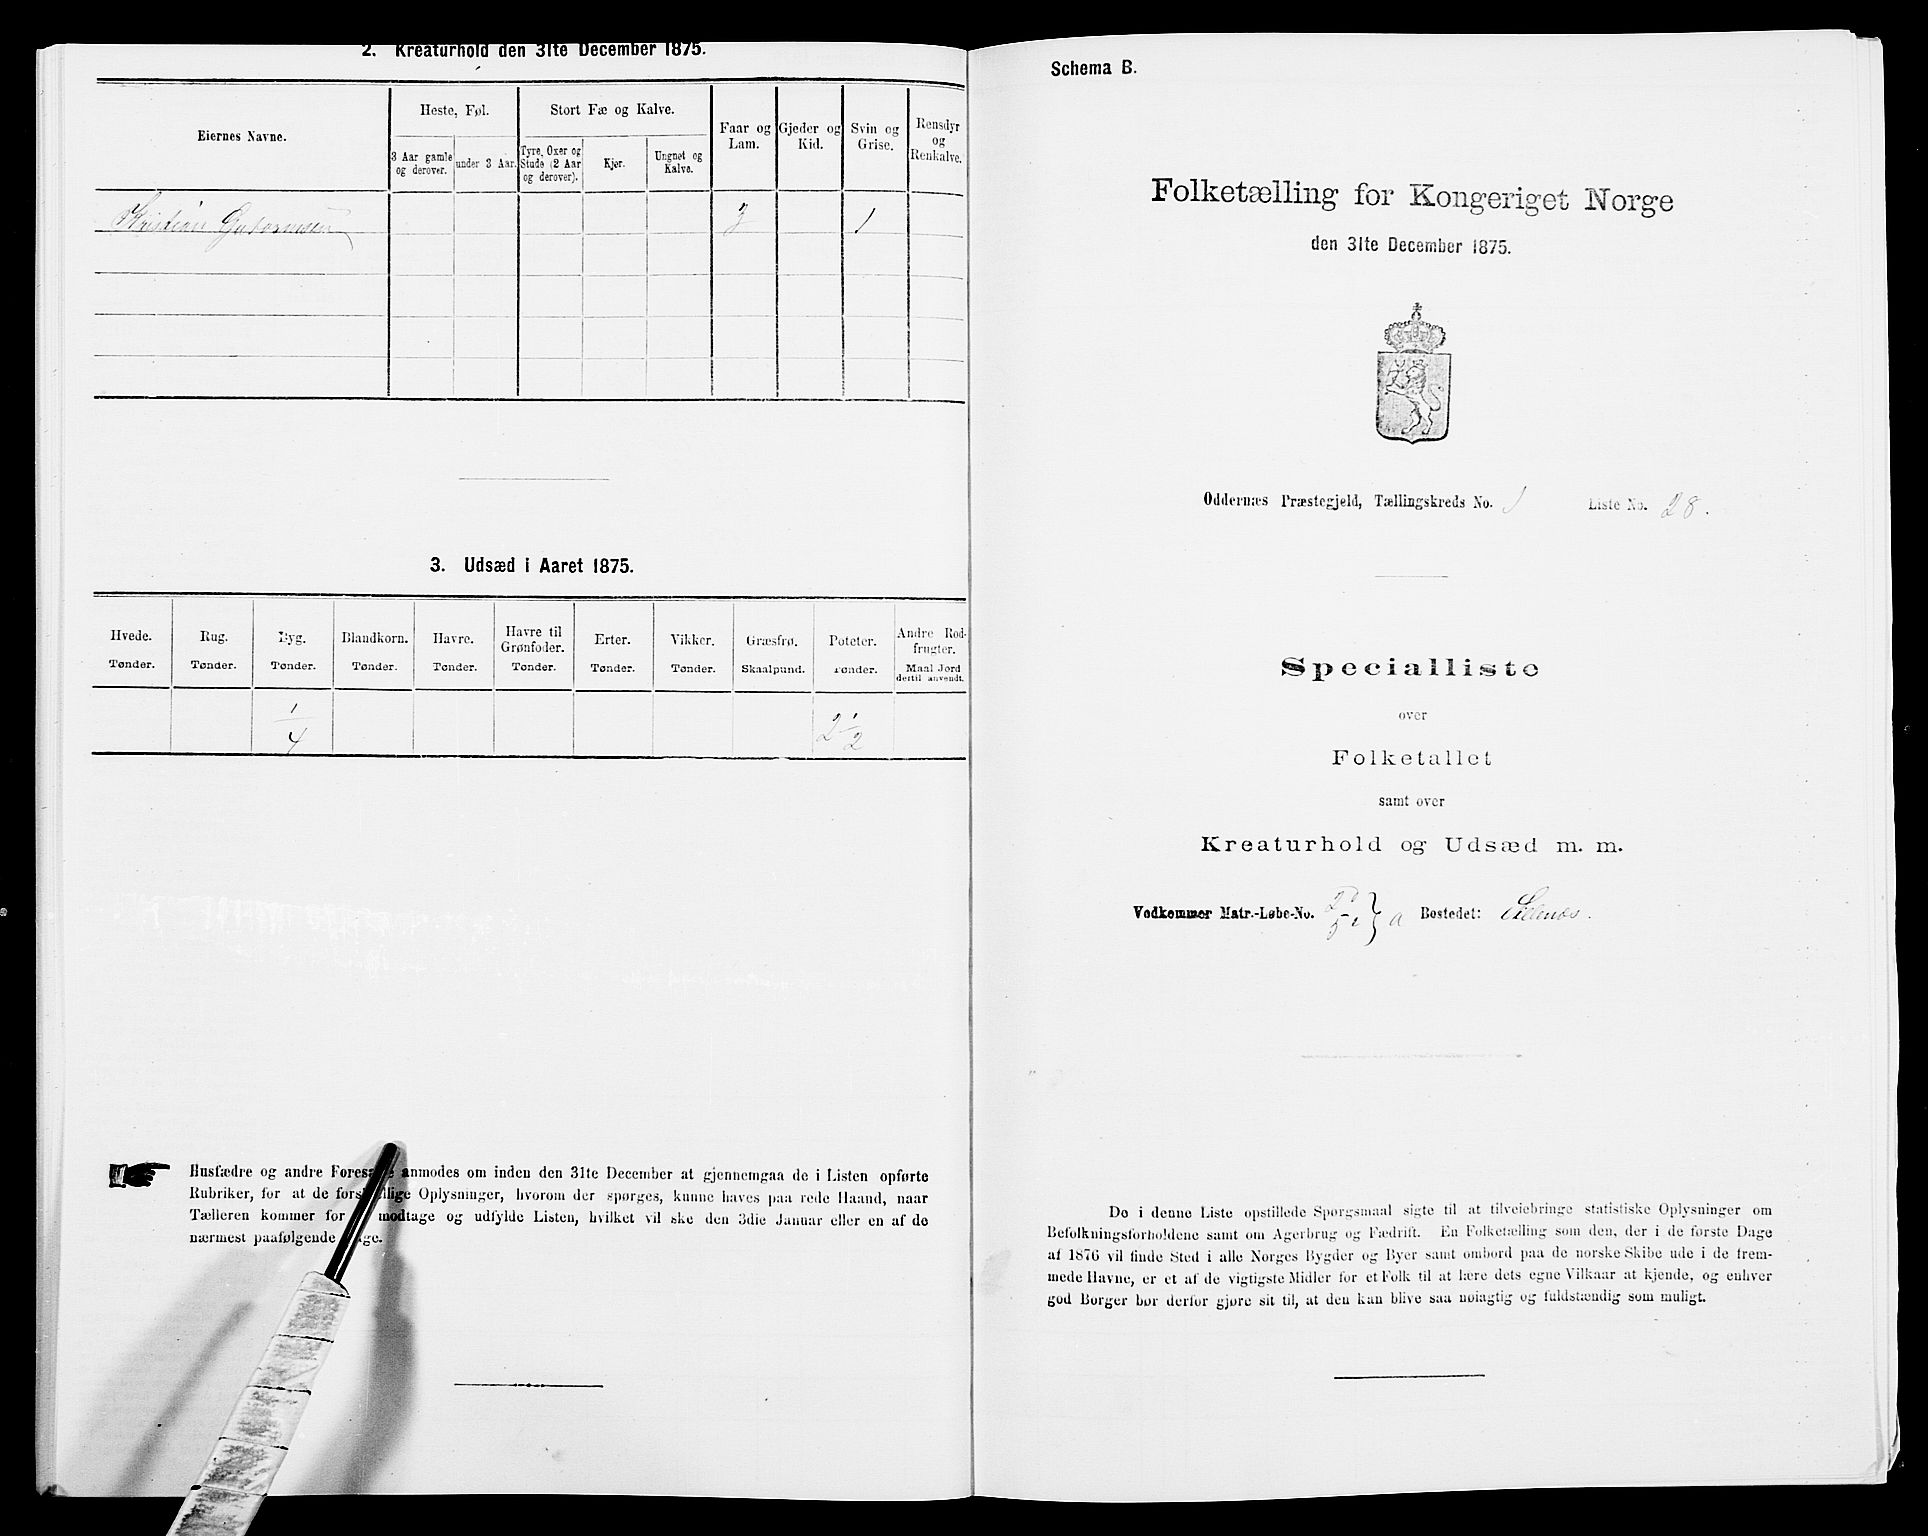 2. Kreaturhold den 31te December 1875.
Eiernes Navne.
Heste, Føl.
Stort Fæ og Kalve.
Faar og Lam.
Gjeder og Kid.
Svin og Grise.
Rensdyr og Renkalve.
3 Aar gamle og derover.
under 3 Aar.
Tyre, Oxer og Stude (2 Aar og derover).
Kjør.
Ungnet og Kalve.
Kristian 3 1
3. Udsæd i Aaret 1875.
Hvede. Rug. Byg. Blandkorn. Havre. Havre til Grønfoder. Erter. Vikker. Græsfrø. Poteter. Andre Rodfrugter.
Tønder. Tønder. Tønder. Tønder. Tønder. Tønder. Tønder. Tønder. Skaalpund. Tønder. Maal Jord dertil anvendt.
1/4 2 1/2
Husfædre og andre anmodes om inden den 31te December at gjennemgaa de i Listen opførte
Rubriker, for at de Oplysninger, hvorom der spørges, kunne haves paa rede Haand, naar
Tælleren kommer for modtage og udfylde Listen, hvilket vil ske den 3die Januar eller en af de
nærmest paafølgende
Schema B.
Folketælling for Kongeriget Norge
den 31te December 1875.
Oddernæs Præstegjeld, Tællingskreds No. 1 Liste No. 28.
Specialliste
over
Folketallet
samt over
Kreaturhold og Udsæd m. m.
Vedkommer Matr.-Løbe-No. a Bostedet:
De i denne Liste opstillede Spørgsmaal sigte til at tilveiebringe statistiske Oplysninger om
Befolkningsforholdene samt om Agerbrug og Fædrift. En Folketælling som den, der i de første Dage
af 1876 vil finde Sted i alle Norges Bygder og Byer samt ombord paa de norske Skibe ude i de frem-
mede Havne, er et af de vigtigste Midler for et Folk til at lære dets egne Vilkaar at kjende, og enhver
god Borger bør derfor gjøre sit til, at den kan blive saa nøiagtig og fuldstændig som muligt.